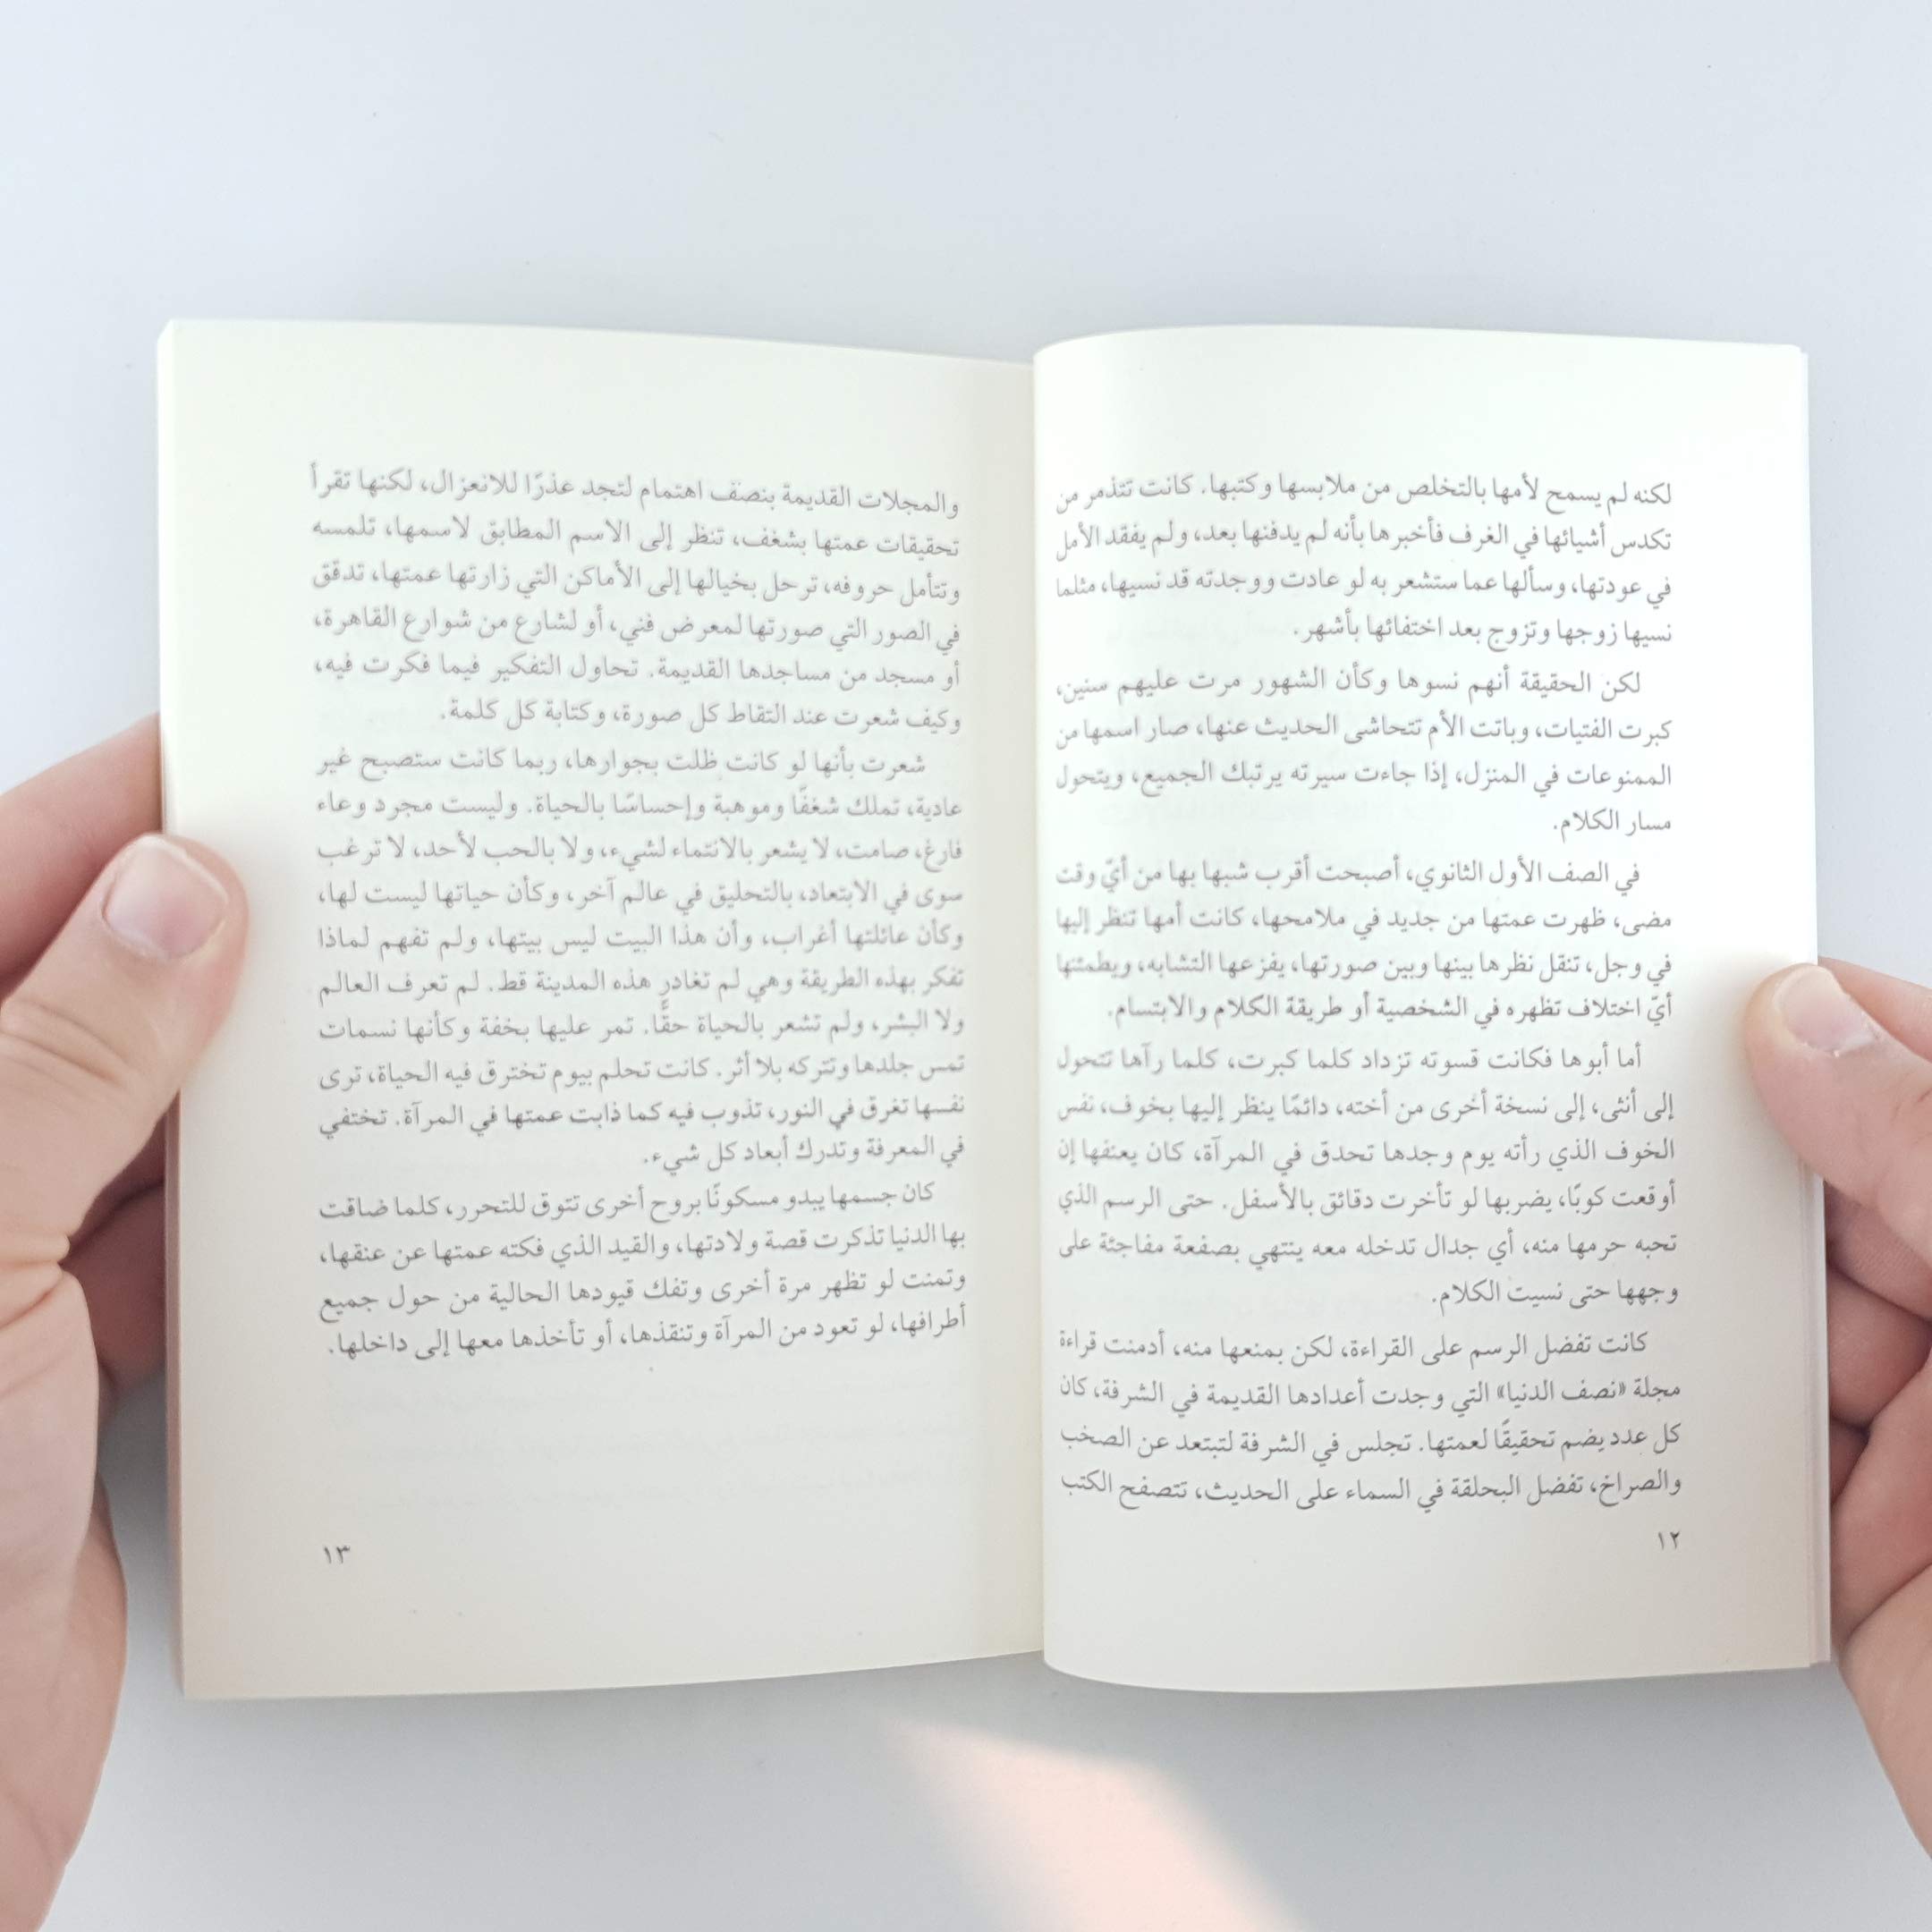 لكنه لم يسمح لأمها بالتخلص من ملابسها وكتبها. كانت تتذمر من
تكدس أشيائها في الغرف فأخبرها بأنه لم يدفنها بعد، ولم يفقد الأمل
في عودتها، وسألها عما ستشعر به لو عادت ووجدته قد نسيها، مثلما
نسيها زوجها وتزوج بعد اختفائها بأشهر.
لكن الحقيقة أنهم نسوها وكأن الشهور مرت عليهم سنين،
كبرت الفتيات، وباتت الأم تتحاشى الحديث عنها، صار اسمها من
الممنوعات في المنزل، إذا جاءت سيرته يرتبك الجميع، ويتحول
مسار الكلام.
في الصف الأول الثانوي، أصبحت أقرب شبها بها من أيّ وقت
مضى، ظهرت عمتها من جديد في ملامحها، كانت أمها تنظر إليها
في وجل، تنقل نظرها بينها وبين صورتها، يفزعها التشابه، ويطمئنها
أيّ اختلاف تظهره في الشخصية أو طريقة الكلام والابتسام.
أما أبوها فكانت قسوته تزداد كلما كبرت، كلما رآها تتحول
إلى أنثى، إلى نسخة أخرى من أخته، دائمًا ينظر إليها بخوف، نفس
الخوف الذي رأته يوم وجدها تحدق في المرآة، كان يعنفها إن
أوقعت كوبًا، يضربها لو تأخرت دقائق بالأسفل. حتى الرسم الذي
تحبه حرمها منه، أي جدال تدخله معه ينتهي بصفعة مفاجئة على
وجهها حتى نسيت الكلام.
كانت تفضل الرسم على القراءة، لكن بمنعها منه، أدمنت قراءة
مجلة «نصف الدنيا» التي وجدت أعدادها القديمة في الشرفة، كان
كل عدد يضم تحقيقًا لعمتها. تجلس في الشرفة لتبتعد عن الصخب
والصراخ، تفضل البحلقة في السماء على الحديث، تتصفح الكتب
١٢
والمجلات القديمة بنصف اهتمام لتجد عذرًا للانعزال، لكنها تقرأ
تحقيقات عمتها بشغف، تنظر إلى الاسم المطابق لاسمها، تلمسه
وتتأمل حروفه، ترحل بخيالها إلى الأماكن التي زارتها عمتها، تدقق
في الصور التي صورتها لمعرض فني، أو لشارع من شوارع القاهرة،
أو مسجد من مساجدها القديمة. تحاول التفكير فيما فكرت فيه،
وكيف شعرت عند التقاط كل صورة، وكتابة كل كلمة.
شعرت بأنها لو كانت ظلت بجوارها، ربما كانت ستصبح غير
عادية، تملك شغفًا وموهبة وإحساسًا بالحياة. وليست مجرد وعاء
فارغ، صامت، لا يشعر بالانتماء لشيء، ولا بالحب لأحد، لا ترغب
سوى في الابتعاد، بالتحليق في عالم آخر، وكأن حياتها ليست لها،
وكأن عائلتها أغراب، وأن هذا البيت ليس بيتها، ولم تفهم لماذا
تفكر بهذه الطريقة وهي لم تغادر هذه المدينة قط. لم تعرف العالم
ولا البشر، ولم تشعر بالحياة حقًّا. تمر عليها بخفة وكأنها نسمات
تمس جلدها وتتركه بلا أثر. كانت تحلم بيوم تخترق فيه الحياة، ترى
نفسها تغرق في النور، تذوب فيه كما ذابت عمتها في المرآة. تختفي
في المعرفة وتدرك أبعاد كل شيء.
كان جسمها يبدو مسكونًا بروح أخرى تتوق للتحرر، كلما ضاقت
بها الدنيا تذكرت قصة ولادتها، والقيد الذي فكته عمتها عن عنقها،
وتمنت لو تظهر مرة أخرى وتفك قيودها الحالية من حول جميع
أطرافها، لو تعود من المرآة وتنقذها، أو تأخذها معها إلى داخلها.
١٣